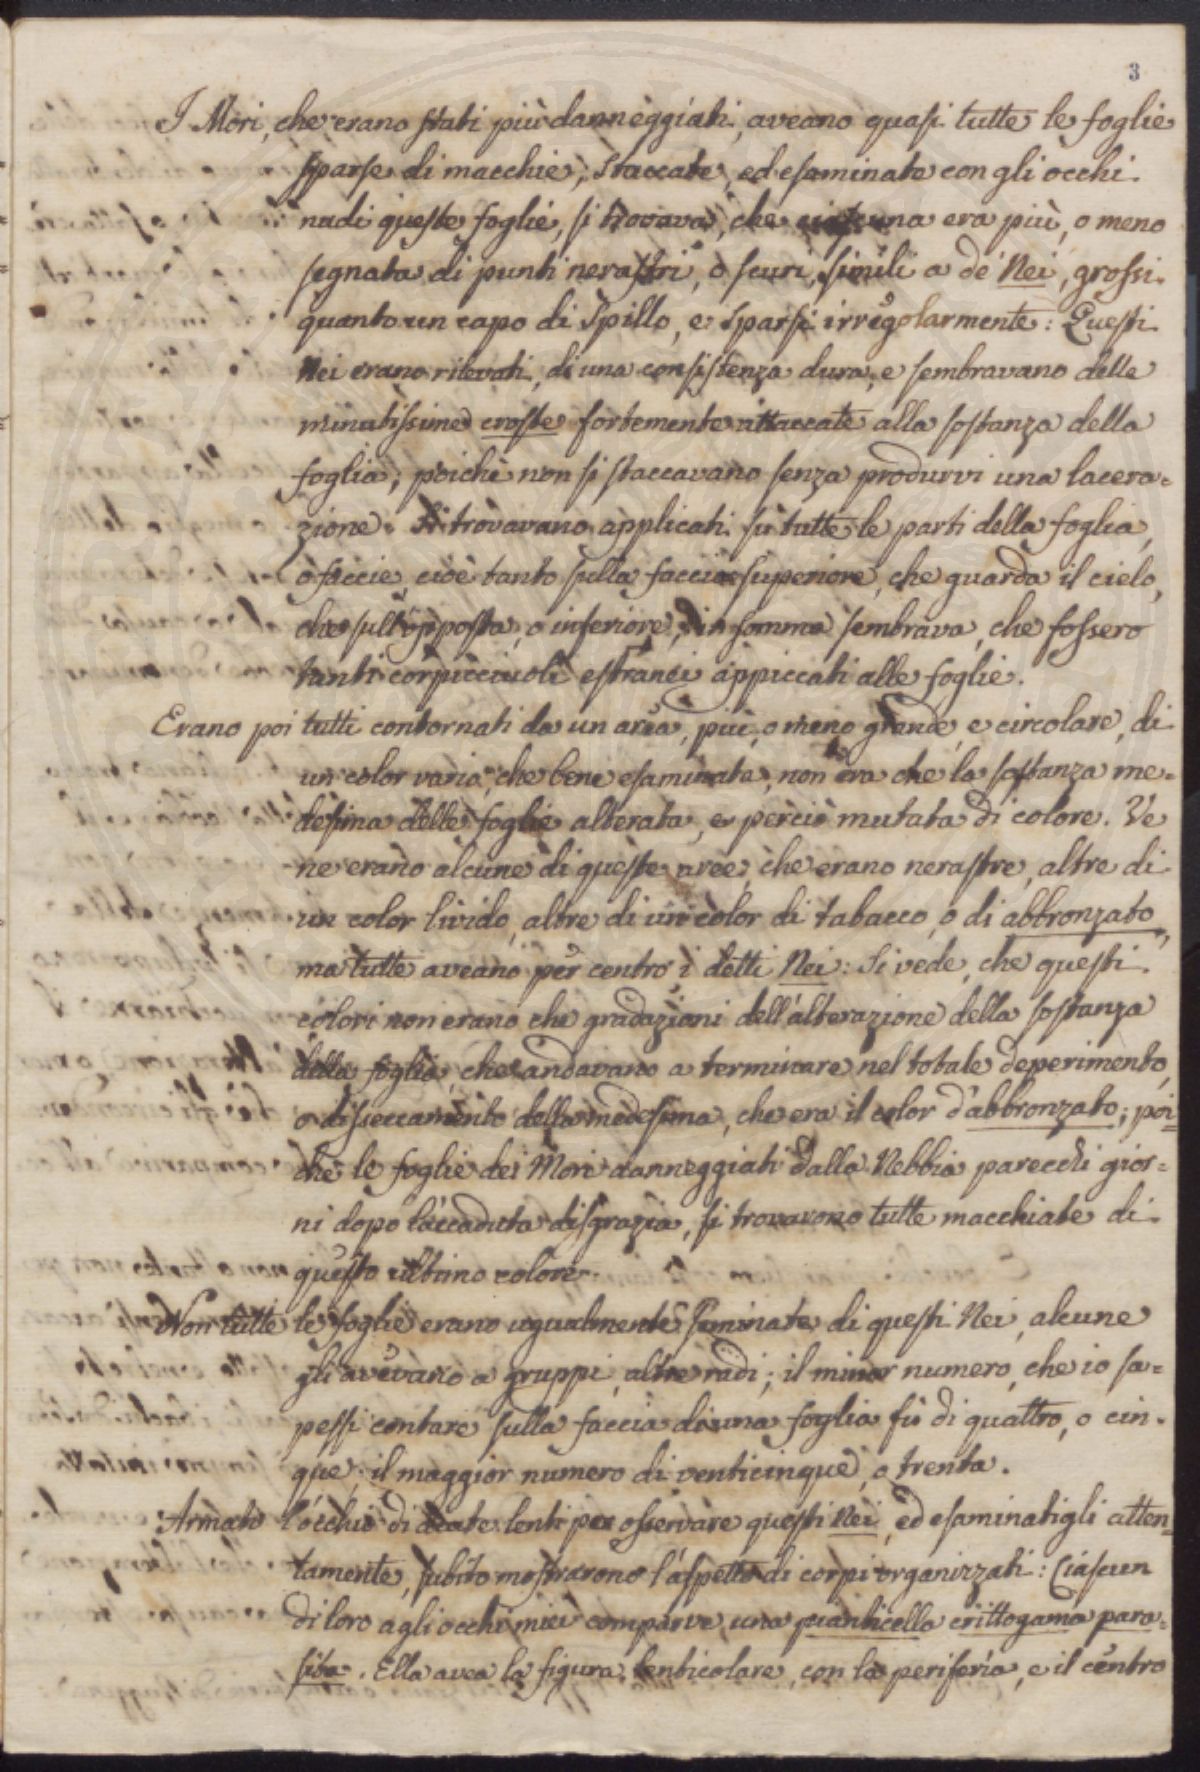 3
I Mori, che erano stati più danneggiati, aveano quasi tutte le foglie
sparse di macchie; staccate, ed esaminate con gli occhi
nudi queste foglie, si trovava, che ciascuna era più, o meno
segnata di punti nerastri, o scuri, simili a de' Nei, grossi
quanto un capo di Spillo, e sparsi irregolarmente: Questi
Nei erano rilevati, di una consistenza dura, e sembravano delle
minutissime croste fortemente attaccate alla sostanza della
foglia; poichè non si staccavano senza produrvi una lacera=
zione. Si trovavano applicati sù tutte le parti della foglia,
o faccie, cioè tanto sulla faccia superiore, che guarda il cielo,
che sull'opposta, o inferiore; in somma sembrava, che fossero
tanti corpicciuoli estranei appiccati alle foglie.
Erano poi tutti contornati da un area, più, o meno grande, e circolare, di
un color varia, che bene esaminata, non era che la sostanza me=
desima delle foglie alterata, e perciò mutata di colore. Ve
ne erano alcune di queste aree, che erano nerastre, altre di
un color livido, altre di un color di tabacco, o di abbronzato,
ma tutte aveano per centro i detti Nei: Si vede, che questi
colori non erano che gradazioni dell'alterazione della sostanza
della foglia, che andavano a terminare nel totale deperimento,
o disseccamento della medesima, che era il color d'abbronzato; poi
che le foglie dei Mori danneggiati dalla Nebbia parecchi gior=
ni dopo l'accaduta disgrazia, si trovarono tutte macchiate di
questo ultimo colore.
Non tutte le foglie erano ugualmente seminate di questi Nei, alcune
gli avevano a gruppi, altre radi; il minor numero, che io sa=
pessi contare sulla faccia di una foglia fù di quattro, o cin=
que, il maggior numero di venticinque, o trenta.
Armato l'occhio di acute lenti per osservare questi Nei, ed esaminatigli atten=
tamente, subito mostrarono l'aspetto di corpi organizzati: Ciascun
di loro agli occhi miei comparve, una pianticella crittogama para=
sita. Ella avea la figura lenticolare, con la periferia, e il centro